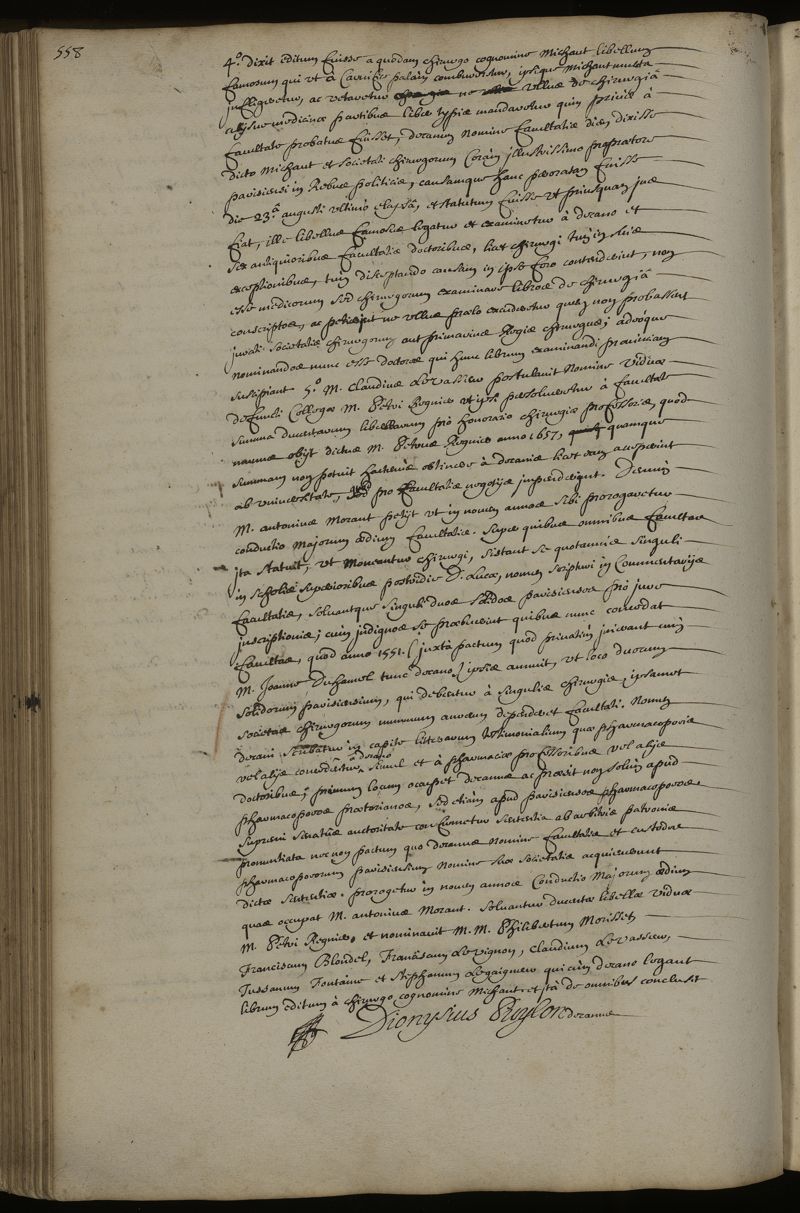 558
4.º Dixit editum fuisse a quodam chirurgo cognomine Michaut libellum
famosum qui ut à carnifice palam combureretur, ipsique Michaut mulcta
infligeretur, ac vetaretur ne ullus de chirurgiâ
alijsve medicinæ partibus liber typis mandaretur quin priùs à
facultate probatus fuisset, decanum nomine facultatis diem dixisse
dicto Michaut et societati chirurgorum coràm illustrissimo proprætore
parisiensi in rebus politicis, causamque hanc peroratam fuisse
die 23.â augusti ultimò elapsâ, et statutum fuisse ut priusquam jus
fiat, ille libellus famosus legatur et examinetur à decano et
sex antiquioribus facultatis doctoribus, licet chirurgi tum in suis
exceptionibus, tum disceptando causam in ipso foro contenderint, non
esse medicorum sed chirurgorum examinare libros de chirurgiâ
conscriptos, ac petierint ne ullus prælo excuderetur quem non probassent
jurati societatis chirurgorum aut primarius Regis chirurgus; adeoque
nominandos nunc esse doctores qui hunc librum examinandi provinciam
suscipiant 5.º M. Claudius Le Vasseur postulavit nomine viduæ
defuncti collegæ M. Petri Regnier ut ipsi persolveretur à facultate
summa ducentarum libellarum pro honorario chirurgiæ professoris, quod
munus obijt dictus M. Petrus Regnier anno 1657, quamque
summam non potuit hactenus obtinere à decanis licet eam acceperint
ab universitate, pro facultatis negotijs impenderint. Demùm
M. antonius Morant petijt ut in novem annos sibi prorogaretur
conductio majorum ædium facultatis. super quibus omnibus facultas
ita statuit, ut moneantur chirurgi, sistant se quotannis singuli
in scholis superioribus postridie D. Lucæ, nomen scripturi in commentarijs
facultatis, solvantque singuli duos solidos parisienses pro jure
inscriptionis; cùm indignos se præbuerint quibus nunc concedat
facultas, quod anno 1551. (juxtà pactum quod privatim inierant cum
M. Joanne Duhamel tunc decano) ipsis annuit, ut loco duorum
solidorum parisiensium, qui debentur à singulis chirurgis, ipsamet
societas chirurgorum nummum aureum dependeret facultati. Nomen
decani scribatur in capite litterarum testimonialium quæ pharmacopoeis
vel alijs conceduntur à decano simul et à pharmaciæ professoribus vel alijs
doctoribus; primum locum occupet decanus ac præsit non solùm apud
pharmacopoeos prætorianos, sed etiam apud parisienses pharmacopoeos.
supremi senatûs auctoritate confirmetur sententia ab arbitris patronis
pronuntiata nec non pactum quo decanus nomine facultatis et custodes
pharmacopoeorum parisiensium nomine suæ societatis acquieverunt
dictæ sententiæ. prorogetur in novem annos conductio majorum ædium
quas occupat M. antonius Morant. solvantur ducentæ libellæ viduæ
M. Petri Regnier, et nominavit M. M. Philibertum Morisset,
Franciscum Blondel, Franciscum Le Vignon, Claudium Le Vasseur,
Tussanum Fontaine et Stephanum Legaigneur qui cùm decano legant
librum editum à chirurgo cognomine Michaut. et ità de omnibus conclusit
Dionysius Puylon decanus